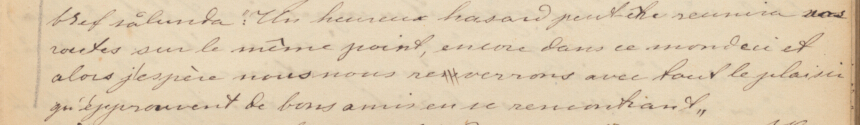 bref sålunda: "Un heureux hasard peut être reunira nos
routes sur le même point, encore dans ce monde ci et
alors j'espère nous nous reverrons avec tout le plaisir
qu'épprouvent de bons amis en se rencontrant„